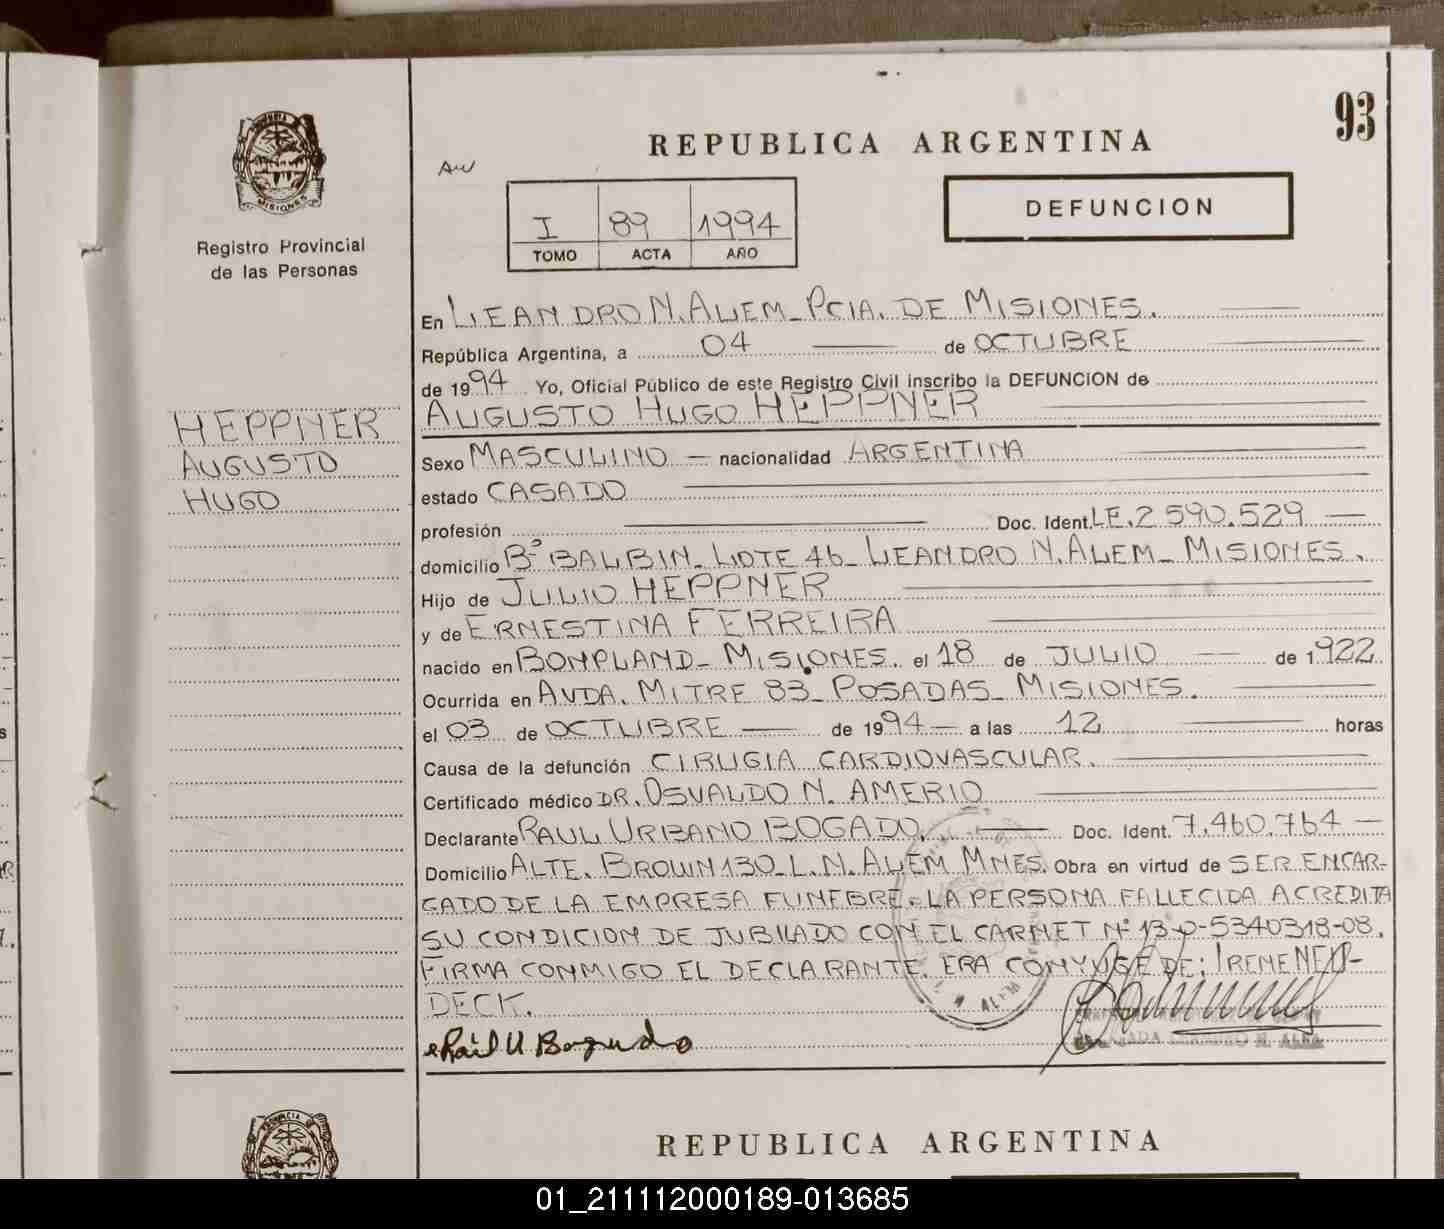 93
REPUBLICA ARGENTINA
PROVINCIA
MISIONES
Registro Provincial
de las Personas
I 89 1994
TOMO ACTA AÑO
DEFUNCION
En LEANDRO N. ALEM - PCIA. DE MISIONES.
República Argentina, a 04 de OCTUBRE
de 1994 Yo, Oficial Público de este Registro Civil inscribo la DEFUNCION de
AUGUSTO HUGO HEPPNER
HEPPNER
AUGUSTO
HUGO
Sexo MASCULINO — nacionalidad ARGENTINA
estado CASADO
profesión — Doc. Ident. LE. 2 590.529 —
domicilio Bº BALBIN. LOTE 46 - LEANDRO N. ALEM - MISIONES.
Hijo de JULIO HEPPNER
y de ERNESTINA FERREIRA
nacido en BONPLAND - MISIONES. el 18 de JULIO — de 1922
Ocurrida en AVDA. MITRE 83 - POSADAS - MISIONES.
el 03 de OCTUBRE — de 1994 — a las 12 horas
Causa de la defunción CIRUGIA CARDIOVASCULAR.
Certificado médico DR. OSVALDO N. AMERIO
Declarante RAUL URBANO BOGADO. — Doc. Ident. 7.460.764 —
Domicilio ALTE. BROWN 130 - L. N. ALEM MNES. Obra en virtud de SER ENCAR-
GADO DE LA EMPRESA FUNEBRE. LA PERSONA FALLECIDA ACREDITA
SU CONDICION DE JUBILADO CON EL CARNET Nº 13-0-5340318-08.
FIRMA CONMIGO EL DECLARANTE. ERA CONYUGE DE: IRENE NEU-
DECK.
Raúl U Bogado
REPUBLICA ARGENTINA
PROVINCIA
01_211112000189-013685